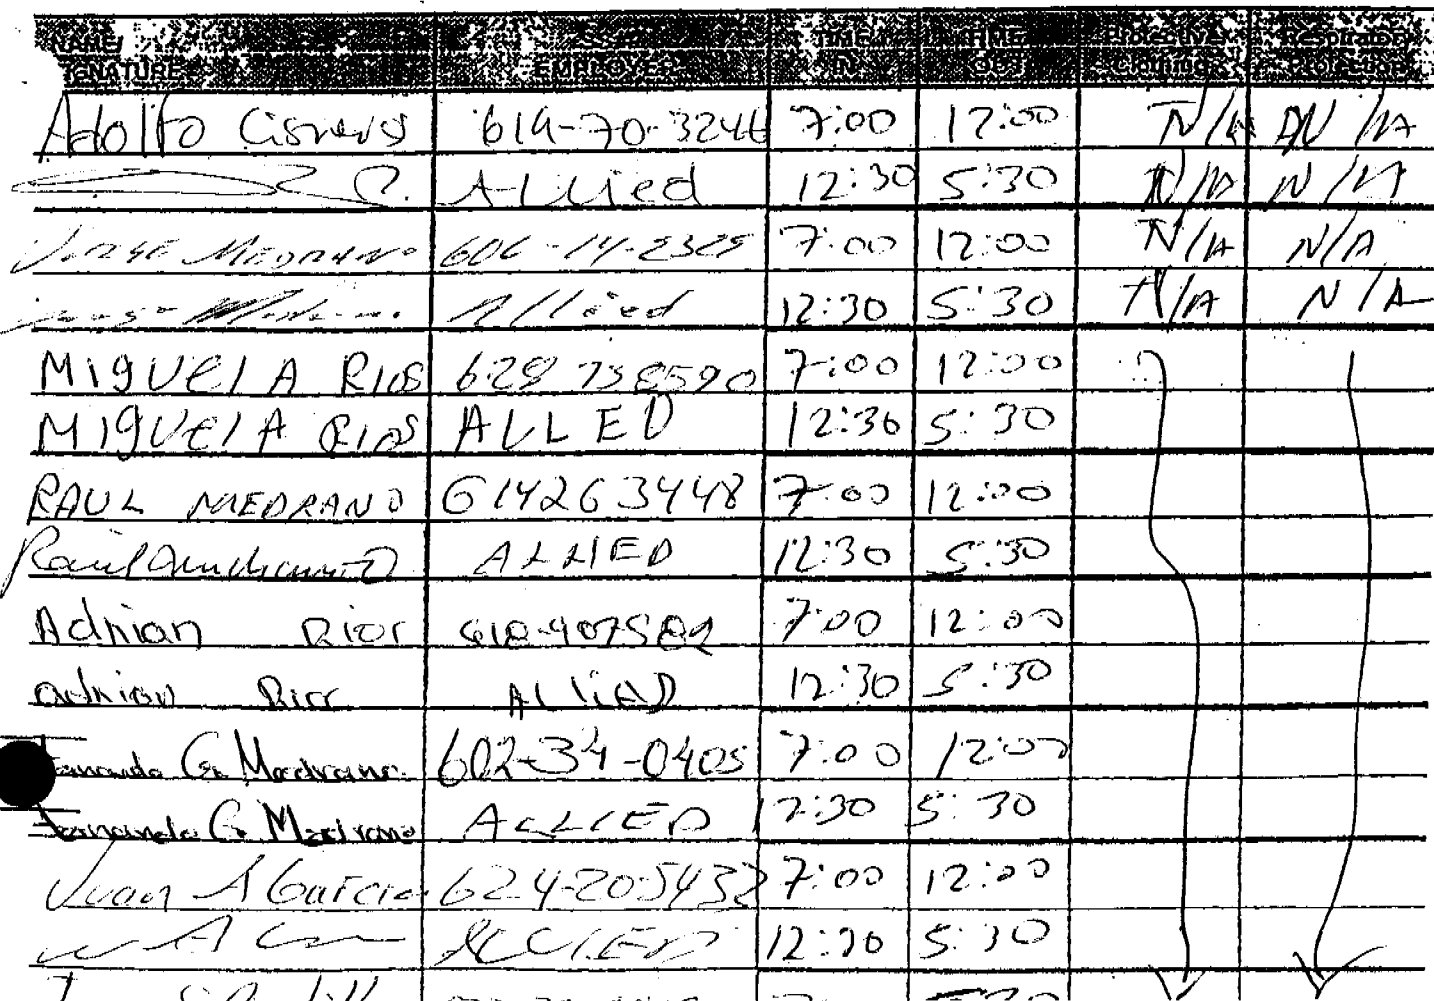 NAME/ SSN/ TIME TIME Protective Respiratory
SIGNATURE EMPLOYER IN OUT Clothing Protection
Adolfo Cisneros 7:00 12:00 N/A N/A
Allied 12:30 5:30 N/A N/A
Jorge Medrano 606-14-2325 7:00 12:00 N/A N/A
Allied 12:30 5:30 N/A N/A
MIGUEL A RIOS 7:00 12:00
MIGUEL A RIOS ALLED 12:30 5:30
RAUL MEDRANO 614263448 7:00 12:00
ALLIED 12:30 5:30
Adrian Rios 7:00 12:00
adrian Rios ALLIED 12:30 5:30
Fernando G. Medrano 602-34-0405 7:00 12:00
Fernando G. Medrano ALLIED 12:30 5:30
Juan A Garcia 624-20-5432 7:00 12:00
ALLIED 12:30 5:30